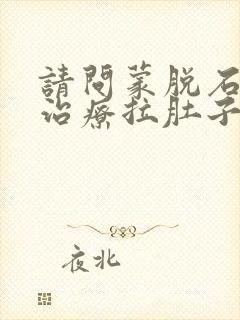 請問蒙脱石
治療拉肚子
夜北